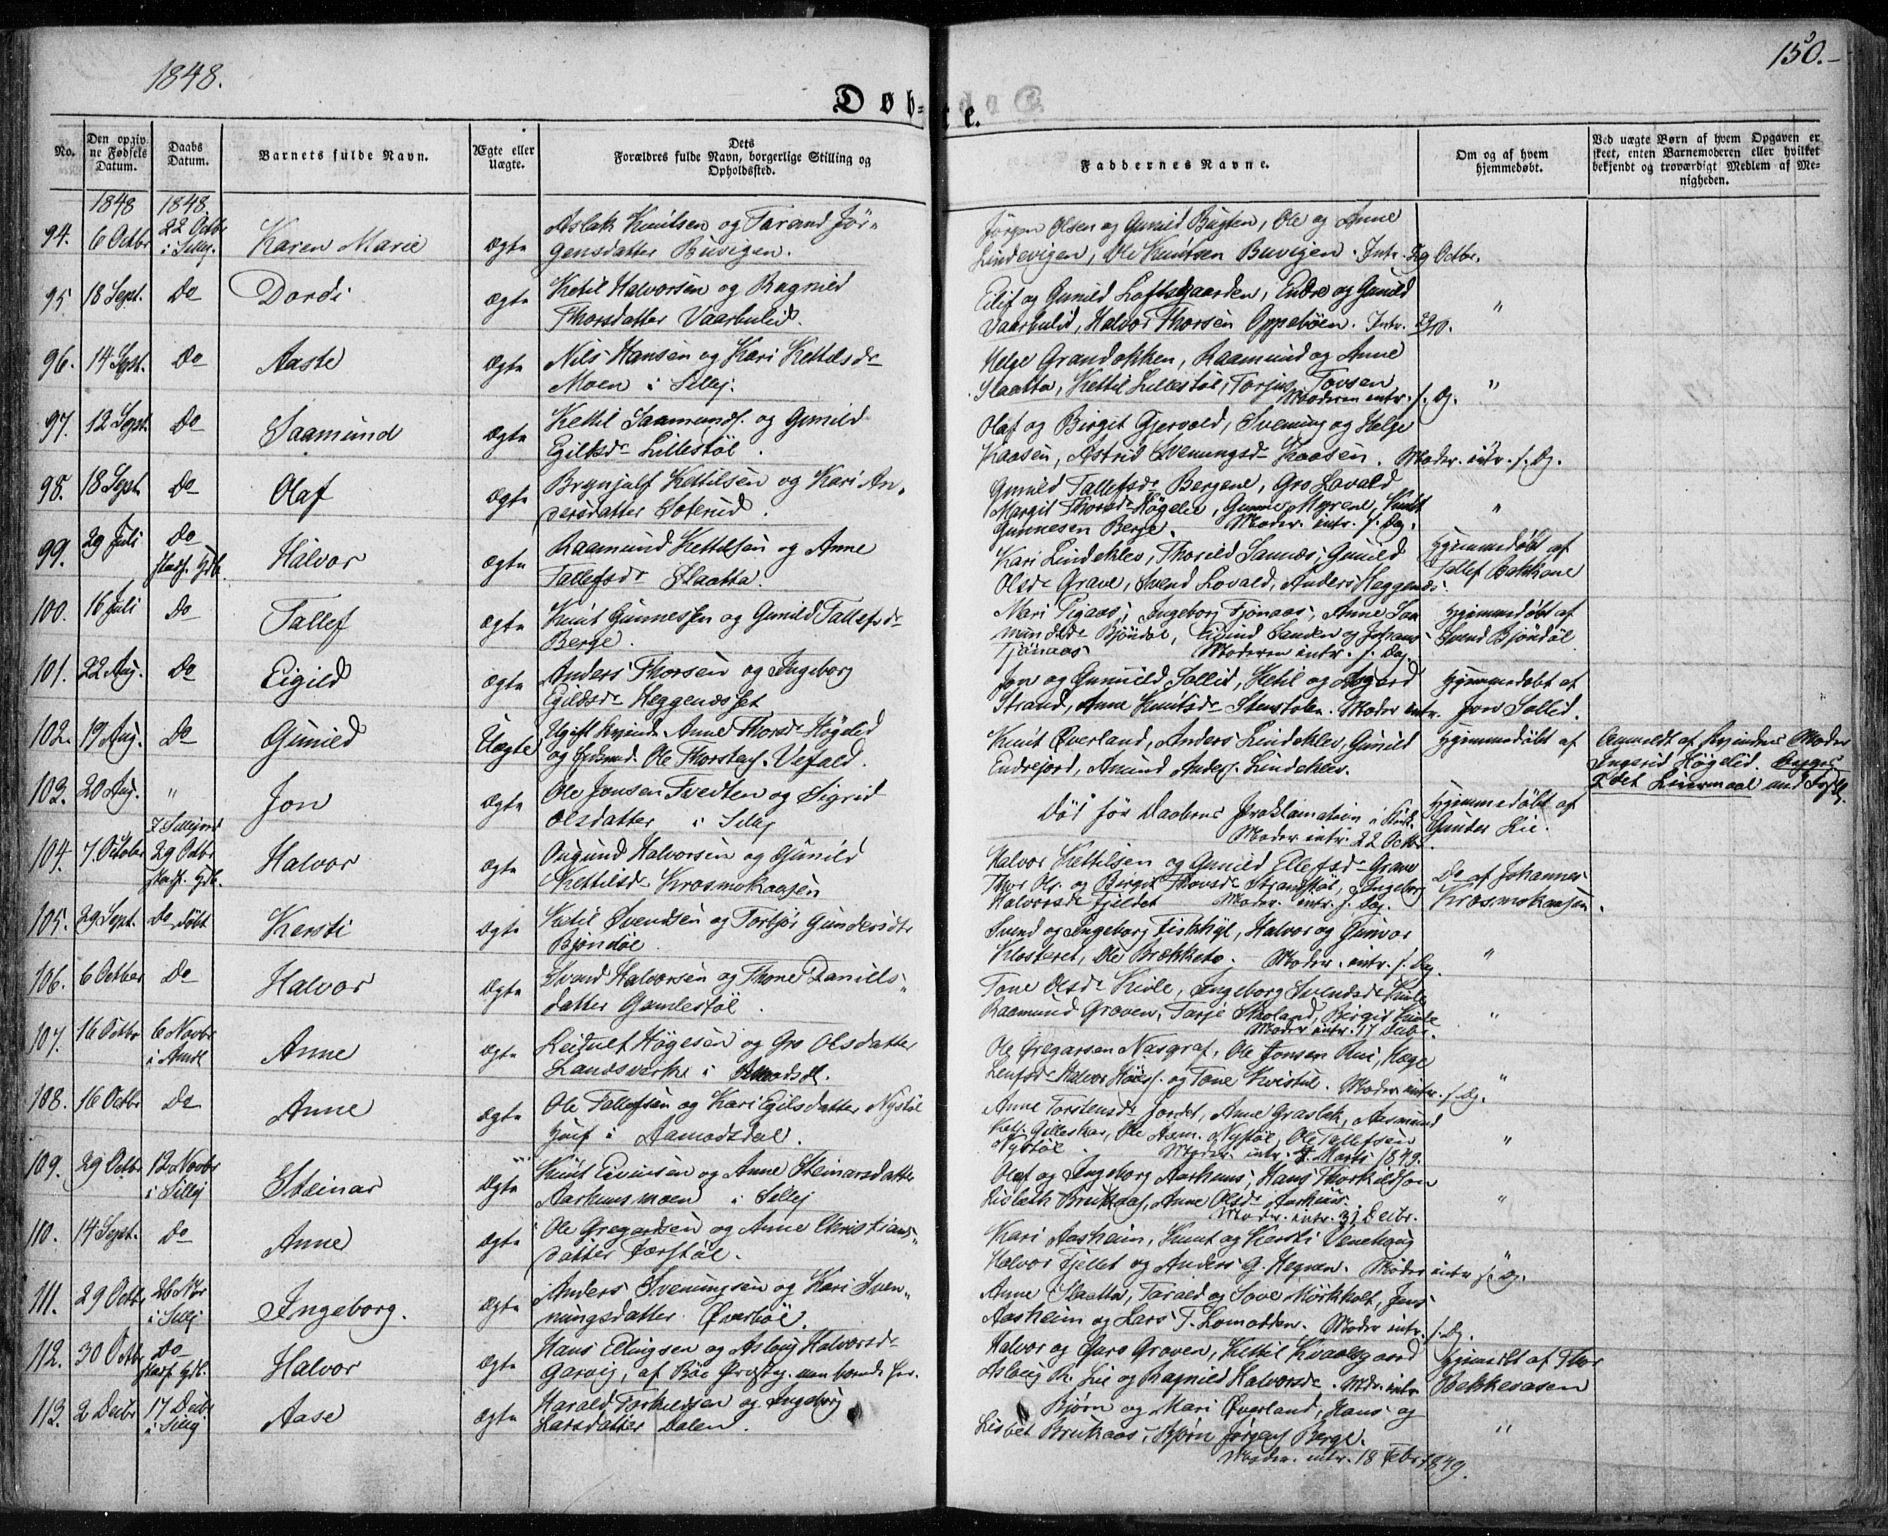 1848.
150.-
Døbte.
No.
Den opgivne Fødsels Datum.
Daabs Datum.
Barnets fulde Navn.
Ægte eller Uægte.
Dets Forældres fulde Navn, borgerlige Stilling og Opholdssted.
Faddernes Navne.
Om og af hvem hjemmedøbt.
Ved uægte Børn af hvem Opgaven er skeet, enten Barnemoderen eller hvilket bekjendt og troværdigt Medlem af Menigheden.
1848 1848.
94. 6 Octbr 22 Octbr i Sillej. Karen Marie ægte
Aslak Knutsen og Tarand Jör-
gensdatter Buvigen.
Jörgen Olsen og Gunild Bugten, Ole og Anne
Lindevigen, Ole Knutsen Buvigen. Intr. 29 Octbr.
95 18 Sept. Do Dordi ægte
Ketil Halvorsen og Ragnild
Thorsdatter Vaarbulid.
Eilif og Gunild Loftsgaarden, Endre og Gunild
Vaarbulid, Halvor Thorsen Oppeböen. Intr. "
96. 14 Sept. Do Aaste ægte
Nils Hansen og Kari Kettilsdr
Moen i Sillej.
Helge Grandokken, Raamund og Anne
Slaatta, Kettil Lillestöl, Torjus Tovsen
Moderen intr. s. Dg. "
97. 12 Sept. Do Saamund ægte
Kettil Saamunds. og Gunild
Egilsdr Lillestöl.
Olaf og Birgit Gjervold, Svening og Helge
Kaasen, Astrid Sveningsdr Kaasen. Moder. intr. s. Dg.
98. 18 Sept Do Olaf ægte
Brynjulf Kettilsen og Kari An-
dersdatter Soterud.
Gunild Tallefsdr Bergene, Gro Lovald
Margit Thorsdr Högelie, Gunne Myrene, Knut
Gunnesen Berge. Moder. intr. s. Dag. "
99. 29 Juli Do stadf. Hjdb. Halvor ægte
Raamund Kettilsen og Anne
Tallefsdr Slaatta.
Kari Lindeklev, Thorild Sannæs, Gunild
Olsdr Grave, Svend Lovald, Anders Heggenæs.
Hjemmedöbt af
Tallef Bakkane
100. 16 Juli Do Tallef ægte
Knut Gunnessen og Gunild Tallefsdr
Berge.
Mari Tjönaas, Ingeborg Tjönaas, Anne Saa-
mundsdr Bjöndal, Eivind Sanden og Johans
Tjönaas Moderen intr. s. Dag.
Hjemmedöbt af
Svend Bjöndöl.
101. 22 Aug. Do Eigild ægte
Anders Thorsen og Ingeborg
Egilsdr Heggenæsset
Jon og Gunuld Sollid, Ketil og Asgerd
Strand, Anne Knutsdr Stenstolen. Moder intr.
Hjemmedöbt af
Jon Sollid.
102. 19 Aug. Do Gunild Uægte
Ugift Kvinde Anne Thorsdr Högelid
og Ole Thorsters. Vefald.
Knut Överland, Anders Lindeklev, Gunild
Endrejord, Amund Anders. Lindeklev.
Hjemmedöbt af
Anmeldt af Kvindens Moder
Ingerid Högelid. Begges
2det Leiermaal
103. 20 Aug. " Jon ægte
Ole Jonsen Tvedten og Sigrid
Olsdatter i Sillej
Död för Daabens Proklamation i Kirk.
Moder intr. 22 Octbr.
Hjemmedöbt af
Gunder Lie.
104. 7. October 29 Octbr stadf. Hjdb. Halvor ægte
Augund Halvorsen og Gunild
Kettilsdr Krosmokaasen
Halvor Kettilsen og Gunild Ellefsdr Grave
Thor Ols. og Birgit Thovsdr Strandstöl, Ingeborg
Halvorsdr Fjeldet Moder. intr. s. Dag.
Do af Johannes
Krosmokaasen.
105. 29 Sept. Do döbt Kersti ægte
Ketil Svendsen og Torbjör Gundersdtr
Bjöndöl
Svend og Ingeborg Fiskhyl, Halvor og Gunvor
Klosteret, Ole Brækketo. Moder. intr. s. Dag. "
106. 6 October Do Halvor ægte
Svend Halvorsen og Thone Daniels-
datter Gamlestöl.
Tone Olsdr Kivle, Ingeborg Svendsdr Kivle
Raamund Groven, Tarje Skoland, Birgit Kivle
Moder intr. 17 Decbr. "
107. 16 Octbr 6 Novbr i Amdl Anne ægte
Leidulf Högesen og Gro Olsdatter
Landsverk i Amodsdl.
Ole Gregarsen Nasgraf, Ole Jonsen Rui, Hæge
Leufsdr Halvor Höies. og Tone Kvistul. Moder intr. s. Dg. "
108. 16 Octbr Do Anne ægte
Ole Tallefsen og Kari Egilsdatter Nystöl
i Aamodsdal.
Anne Torstensdr Jordet, Anne Graslek, Aasmund
Gilleskar, Ole Asm. Nystöl, Ole Tallefsen
Nystöl Moder. intr. 4 Marts 1849. "
109. 29 Octbr 12 Novbr i Sillej Steinar ægte
Knut Eivinsen og Anne Steinarsdatter
Aarhusmoen i Sillej
Olaf og Ingeborg Aarhuus, Hans Thorkildsen
Lisbeth Brukaas, Anne Olsdr Aarhuus.
Moder. intr. 31 Decbr. "
110. 14 Sept. Do Anne ægte
Ole Gregardsen og Anne Christians-
datter Torstöl.
Kari Aasheim, Knut og Kersti Venehaug
Halvor Fjellet og Anders G. Hegnen. Moder intr s. Dg. "
111. 29 Octbr 26 Nov i Sillej Ingeborg. ægte
Anders Sveningsen og Kari Sven-
ningsdatter Överböe.
Anne Slaatta, Tarald og Sove Mörkholt, Jens
Aasheim og Lars T. Lomodden. Moder intr. s. Dg.
112. 30 Octbr Do stadf. Hjdb. Halvor ægte
Hans Ellingsen og Aslaug Halvorsdr
Garvig, af Böe Præstg.
Halvor og Guro Groven, Kettil Kvaalsgaard
Aslaug R. Lie og Ragnild Halvorsdr. Mdr. intr
Hjemdöbt af Thor
Bekkevasen
113. 2 Decbr 17 Decbr i Sillej Aase ægte
Harald Torkildsen og Ingeborg
Larsdatter Dalen.
Björn og Mari Överland, Hans og
Lisbet Brukaas, Björn Jörgens. Berge.
Moder. intr. 18 Febr 1849. "